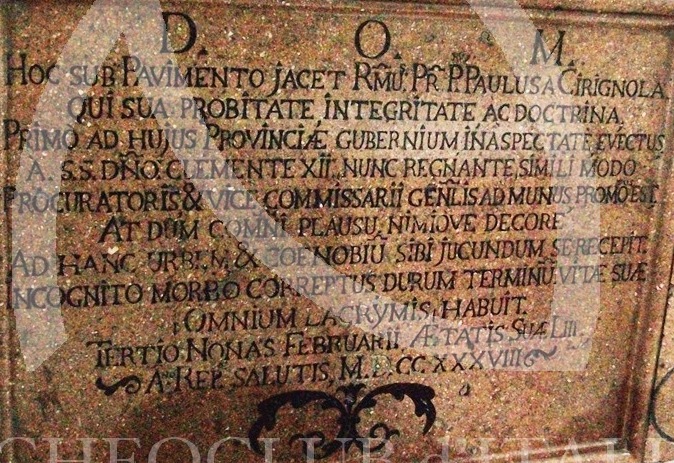 D. O. M.
HOC SUB PAVIMENTO JACET RM̃U. PR̃ P. PAULUS A CIRIGNOLA
QUI SUA PROBITATE INTEGRITATE AC DOCTRINA.
PRIMO AD HUJUS PROVINCIÆ GUBERNIUM INASPECTATE, EVECTUS
A. S.S. DÑO. CLEMENTE XII. NUNC REGNANTE, SIMILI MODO
PROCURATORIS & VICE COMMISSARII GEÑLIS AD MUNUS PROMO EST
AT DUM COMÑI PLAUSU, NIMIOVE DECORE
AD HANC URBEM, & COENOBIŪ SIBI JUCUNDUM SE RECEPIT.
INCOGNITO MORBO CORREPTUS DURUM TERMINŪ VITÆ SUÆ
OMNIUM LACRYMIS, HABUIT.
TERTIO NONAS FEBRUARII ÆTATIS SUÆ LIII
A. REP. SALUTIS, M.D.CC.XXXVIII
CHEOCLUB d'ITALI